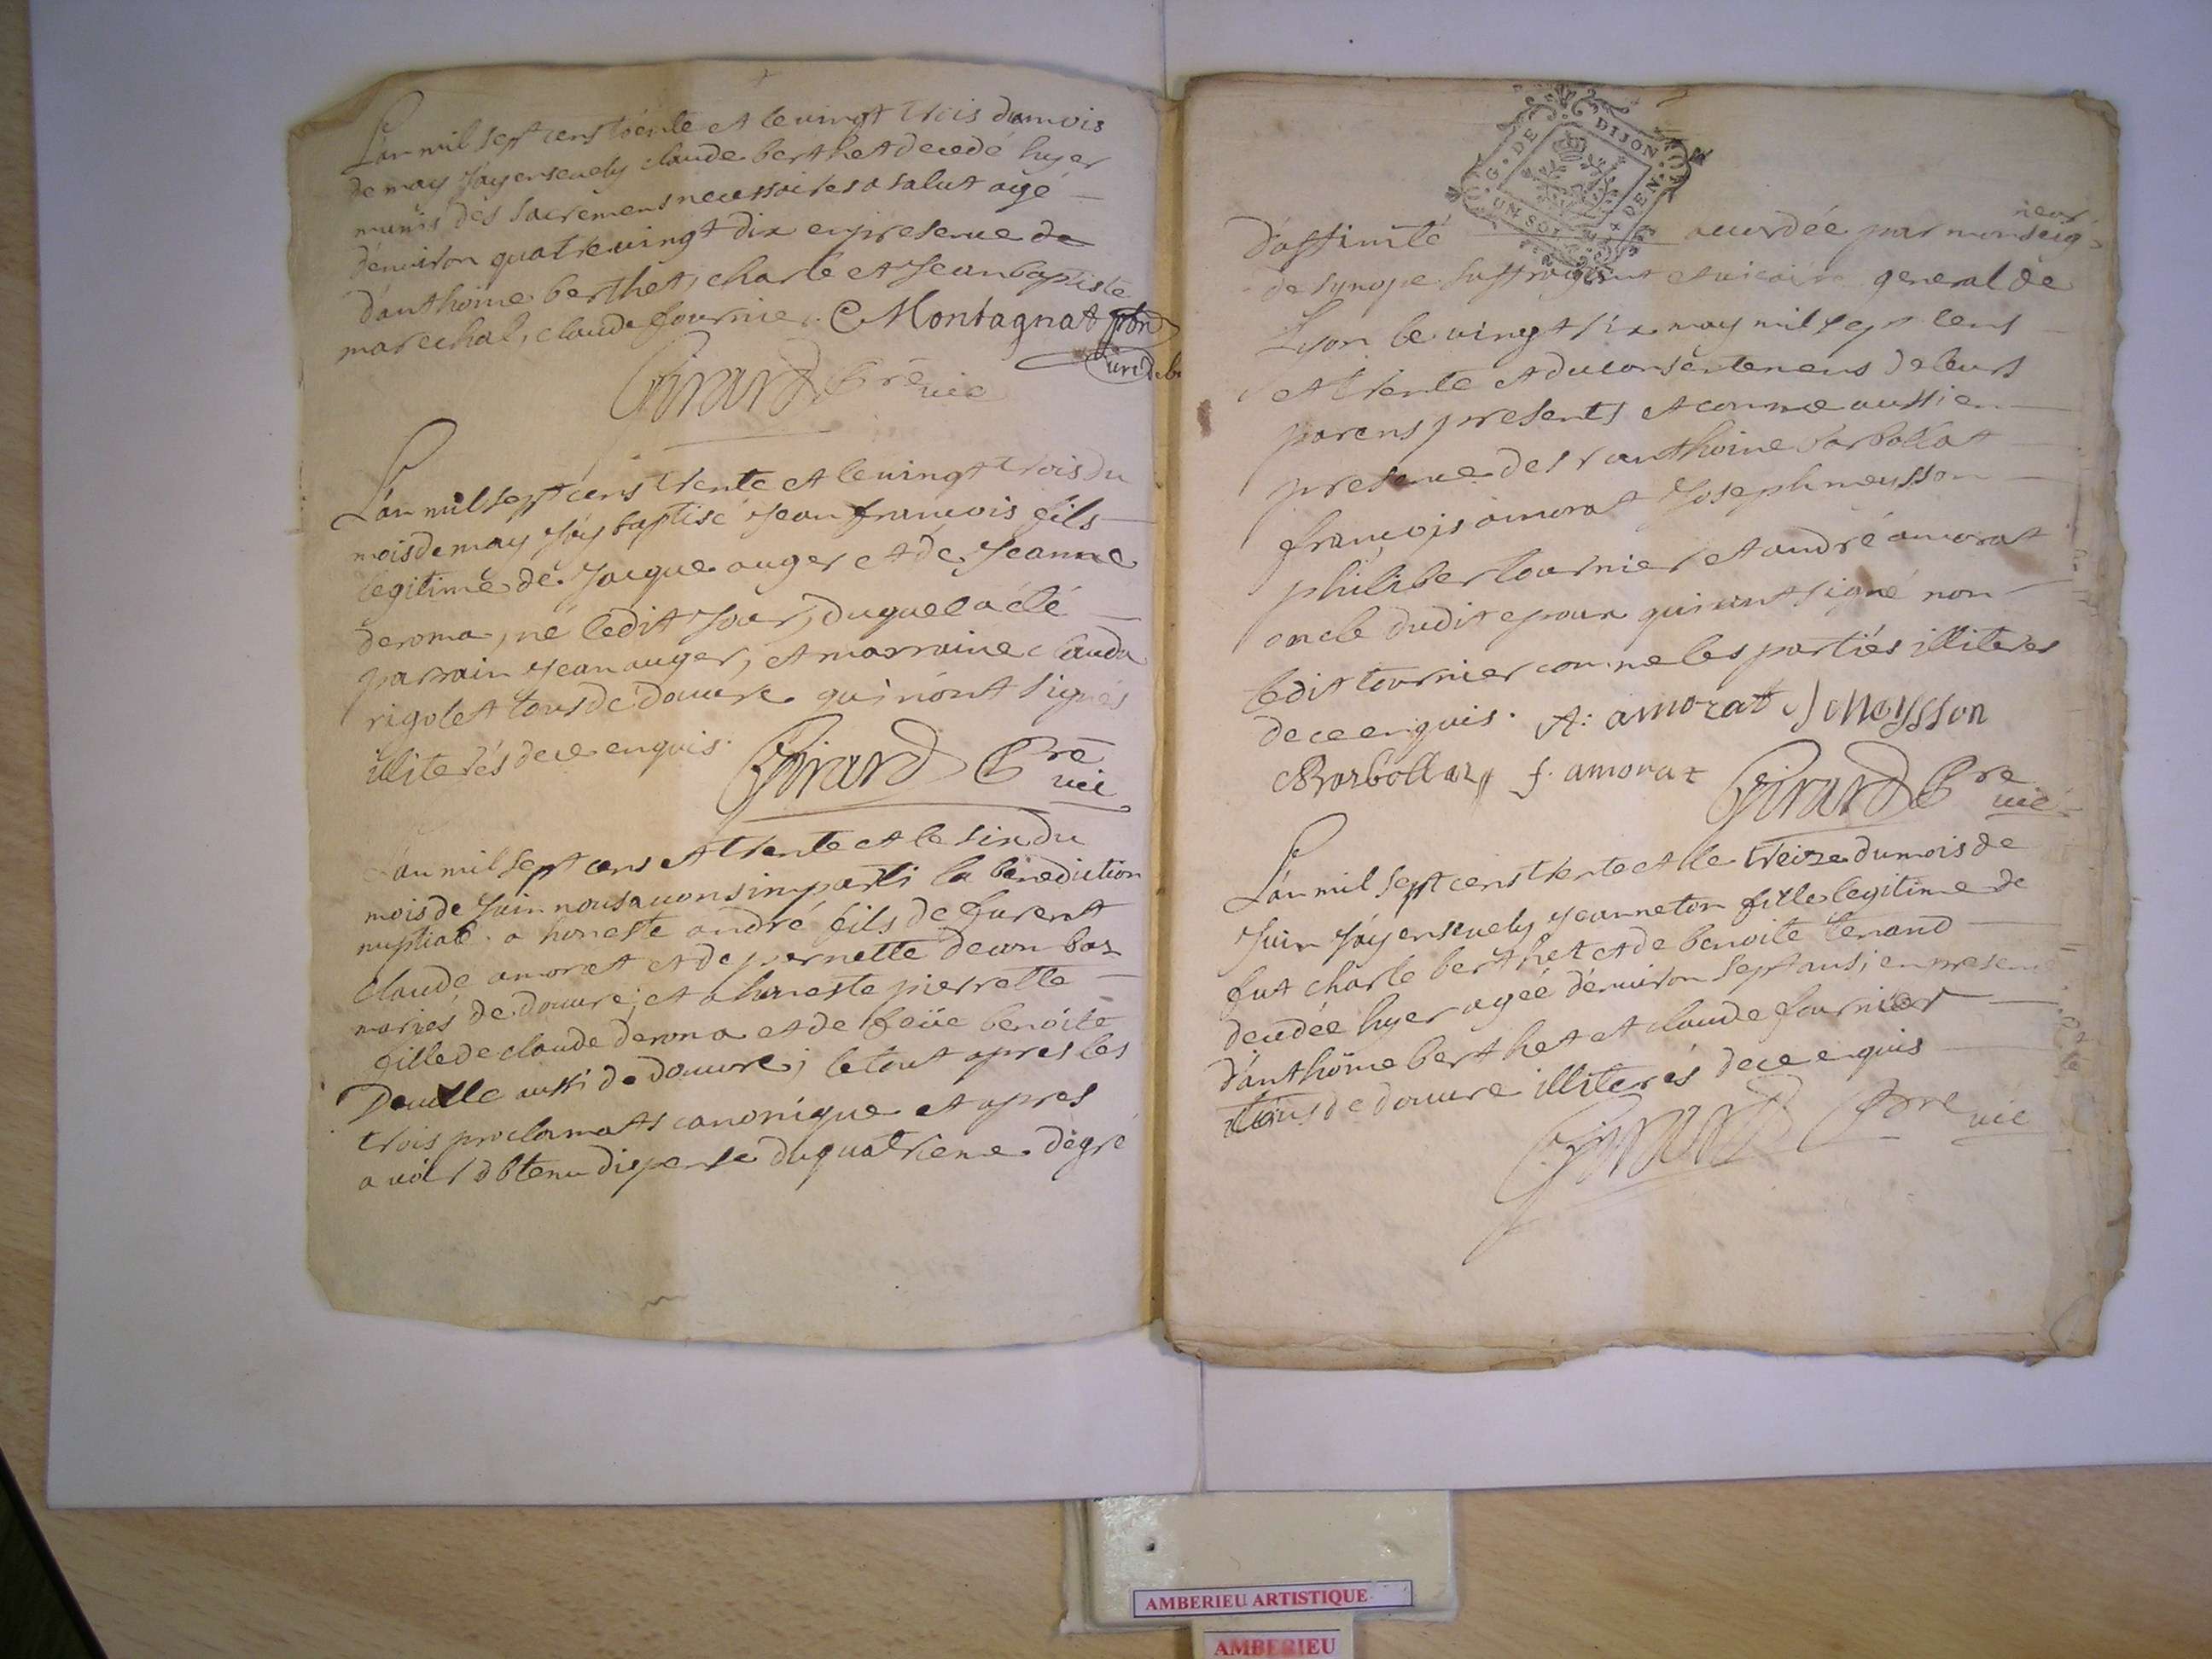 L'an mil sept cens trente et le vingt trois du mois
de may j'ay enseuely claude berthet decedé hyer
munis des sacremens necessaires a salut agé
d'enuiron quatreuingt dix en presence de
d'anthoine berthet, charle et Jean baptiste
marechal, claude fournier. C Montagnat ptre
curé
Girard Pre
vic
L'an mil sept cens trente et le vingt trois du
mois de may j'ay baptisé Jean francois fils
legitime de Jacque auger et de Jeanne
deroma, né ledit jour, duquel a eté
parrain Jean auger, et marraine clauda
rigolet tous de douure qui n'ont signés
illiterés de ce enquis.
Girard Pre
vic
L'an mil sept cens et trente et le six du
mois de Juin nous auons imparti la benediction
nuptiale a honeste andré fils de furent
claude amorat et de pernette
mariés de douure; et a honeste pierrette
fille de claude deroma et de feüe benoite
aussi de douure; le tout apres les
trois proclamats canonique et apres
auoir obtenu dispense du quatrieme degré
G. DE DIJON
UN SOL DEN.
neur
d'affinité accordée par monseig
de synope suffragant et vicaire general de
Lyon le vingt six may mil sept cens
et trente et du consentemens de leurs
parens presents et comme aussi en
presence des r anthoine barbollat
francois amorat Joseph meysson
philiber tournier et andré amorat
oncle dudit epoux qui ont signé non
ledit tournier comme les partiés illiteres
de ce enquis. A: amorat J Meysson
Barbollat f. amorat Girard Pre
vic
L'an mil sept cens trente et le treize du mois de
Juin j'ay enseuely Jeanneton fille legitime de
fut charle berthet et de benoite tenand
decedée hyer agée d'enuiron sept ans, en presence
d'anthoine berthet et claude fournier
tous de douure illiterés de ce enquis
Girard Pre
vic
AMBERIEU ARTISTIQUE
AMBERIEU